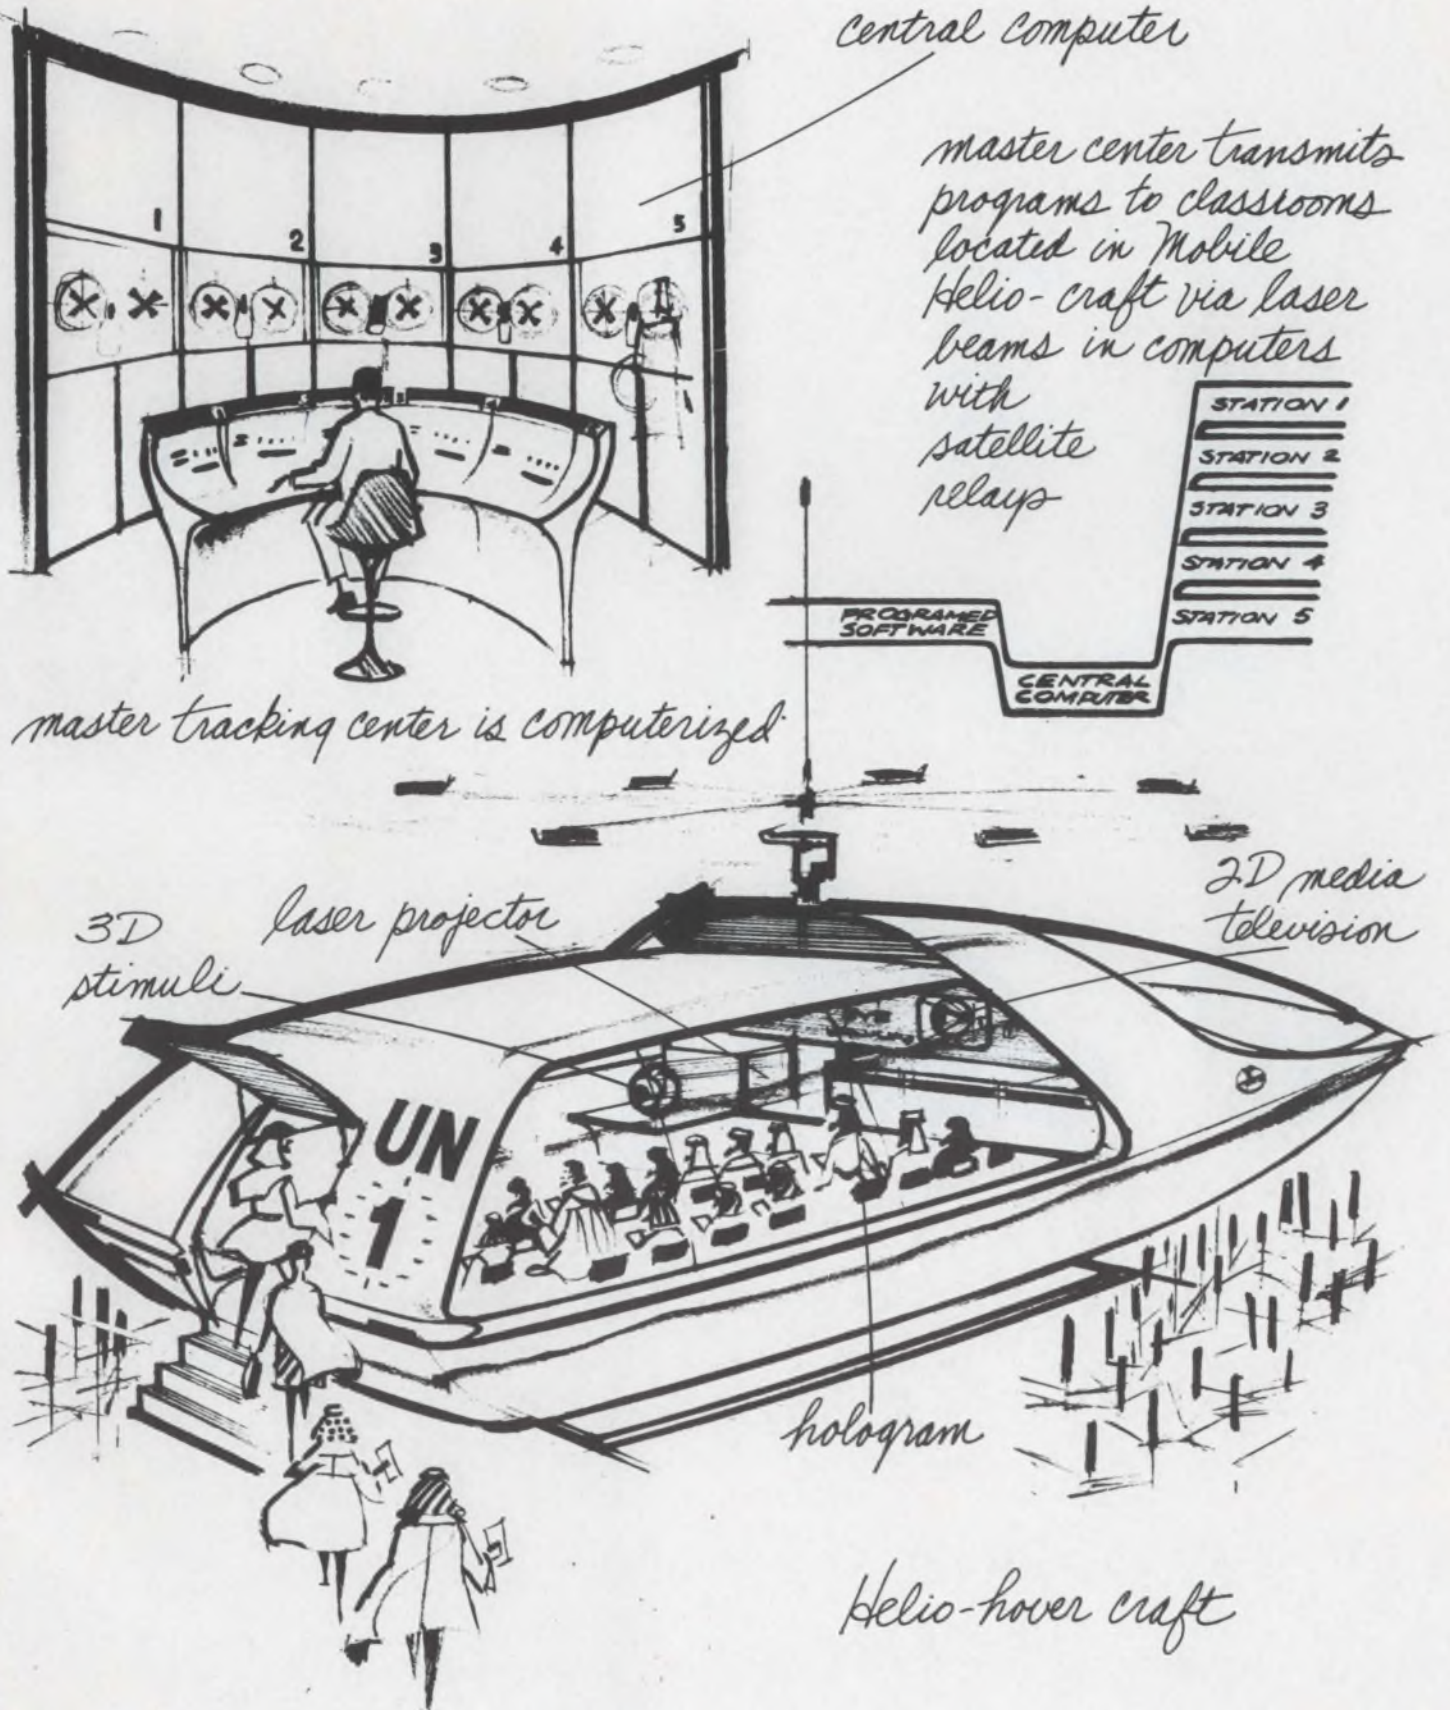 central computer
master center transmits
programs to classrooms
located in Mobile
Helio-craft via laser
beams in computers
with
satellite
relays
1
2
3
4
5
STATION 1
STATION 2
STATION 3
STATION 4
STATION 5
PROGRAMED
SOFTWARE
CENTRAL
COMPUTER
master tracking center is computerized
3D
stimuli
laser projector
2D media
television
UN
1
hologram
Helio-hover craft